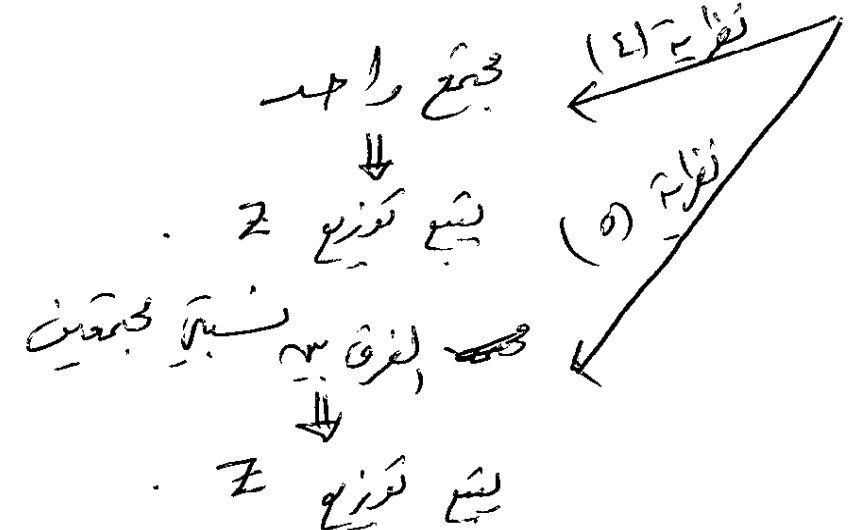 نظرية (٤)
مجتمع واحد
يتبع توزيع Z .
نظرية (٥)
الفرق بين نسبتي مجتمعين
يتبع توزيع Z .